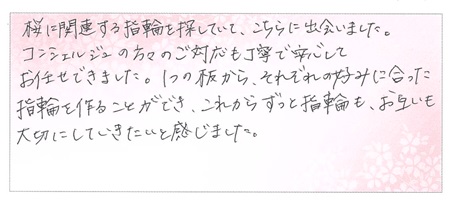 桜に関連する指輪を探していて、こちらに出会いました。
コンシェルジュの方々のご対応も丁寧で安心して
お任せできました。1つの板から、それぞれの好みに合った
指輪を作ることができ、これからずっと指輪も、お互いも
大切にしていきたいと感じました。